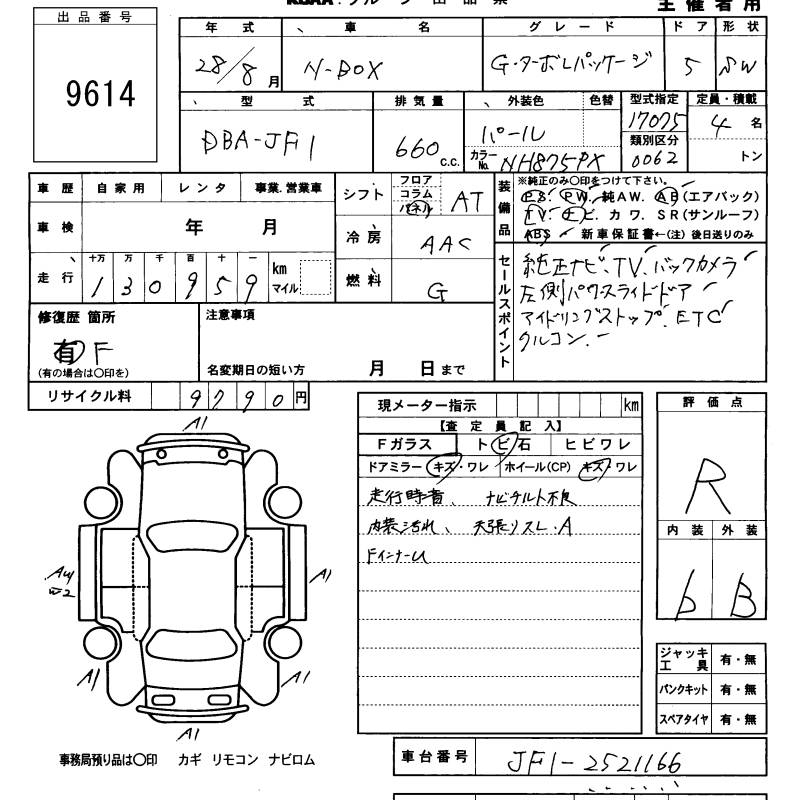 出品番号
9614
主催者用
年式 車名 グレード ドア 形状
28/8月 N-BOX G・ターボLパッケージ 5 SW
型式 排気量 外装色 色替 型式指定 定員・積載
DBA-JF1 660c.c. パール 17075 4名
カラーNo. NH875PX 類別区分 0062 トン
車歴 自家用 レンタ 事業.営業車
車検 年 月
走行 十万 万 千 百 十 一
130959 km マイル
シフト フロア コラム パネル AT
冷房 AAC
燃料 G
装備品 ※純正のみ〇印をつけて下さい。
P.S. PW. 純AW. AB(エアバック)
TV. ナビ. カワ. SR(サンルーフ)
ABS 新車保証書←(注)後日送りのみ
セールスポイント
純正ナビ、TV、バックカメラ
左側パワースライドドア
アイドリングストップ. ETC
クルコン.
修復歴 箇所
有 F
(有の場合は〇印を)
注意事項
名変期日の短い方 月 日まで
リサイクル料 9790円
現メーター指示 km
【査定員記入】
Fガラス トビ石 ヒビワレ
ドアミラー キズ・ワレ ホイール(CP) キズ・ワレ
走行時音、ナビチルト不良
内装汚れ、天張りスレ.A
FインナーU
評価点
R
内装 外装
b B
ジャッキ 工具 有・無
パンクキット 有・無
スペアタイヤ 有・無
A1
A1
A1
A1
A1
W2
事務局預り品は〇印 カギ リモコン ナビロム
車台番号 JF1-2521166